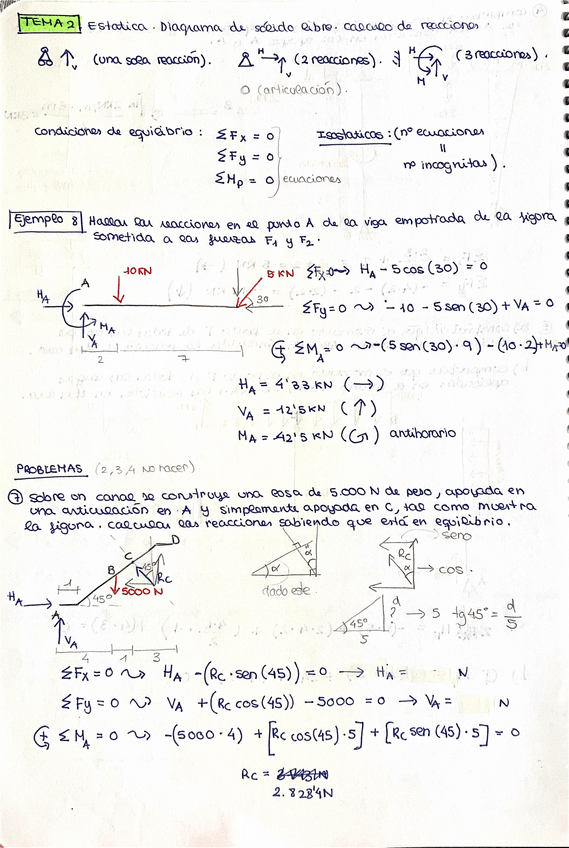 TEMA 2 Estatica. Diagrama de sólido libre. calculo de reacciones.
V (una sola reacción). H V (2 reacciones). H M V (3 reacciones).
O (articulación).
condiciones de equilibrio: ΣFx = 0
ΣFy = 0
ΣMp = 0 ecuaciones
Isostaticos: (nº ecuaciones
=
nº incognitas).
Ejemplo 8 Hallar las reacciones en el punto A de la viga empotrada de la figura
sometida a las fuerzas F1 y F2.
10KN
5 KN
A
HA
30
MA
VA
2
7
ΣFx=0 ⇝ HA - 5cos(30) = 0
ΣFy=0 ⇝ -10 - 5sen(30) + VA = 0
(+ ΣMA=0 ⇝ -(5sen(30)·9) - (10·2)+MA=0
HA = 4'33 KN (→)
VA = 12'5 KN (↑)
MA = 42'5 KN () antihorario
PROBLEMAS (2,3,4 NO hacer)
7 Sobre un canal se construye una losa de 5.000 N de peso, apoyada en
una articulación en A y simplemente apoyada en C, tal como muestra
la figura. calcular las reacciones sabiendo que está en equilibrio.
D
C
B
45º
RC
5000 N
1
HA
45º
A
VA
4 1 3
α
α
dado este.
seno
RC
α
→ cos.
d
?
45º
5
→ 5 tg45º = d/5
ΣFx = 0 ⇝ HA -(RC·sen(45)) = 0 → HA = N
ΣFy = 0 ⇝ VA +(RC cos(45)) - 5000 = 0 → VA = N
(+ ΣMA = 0 ⇝ -(5000·4) + [RC cos(45)·5] + [RC sen(45)·5] = 0
RC =
2.828'4N